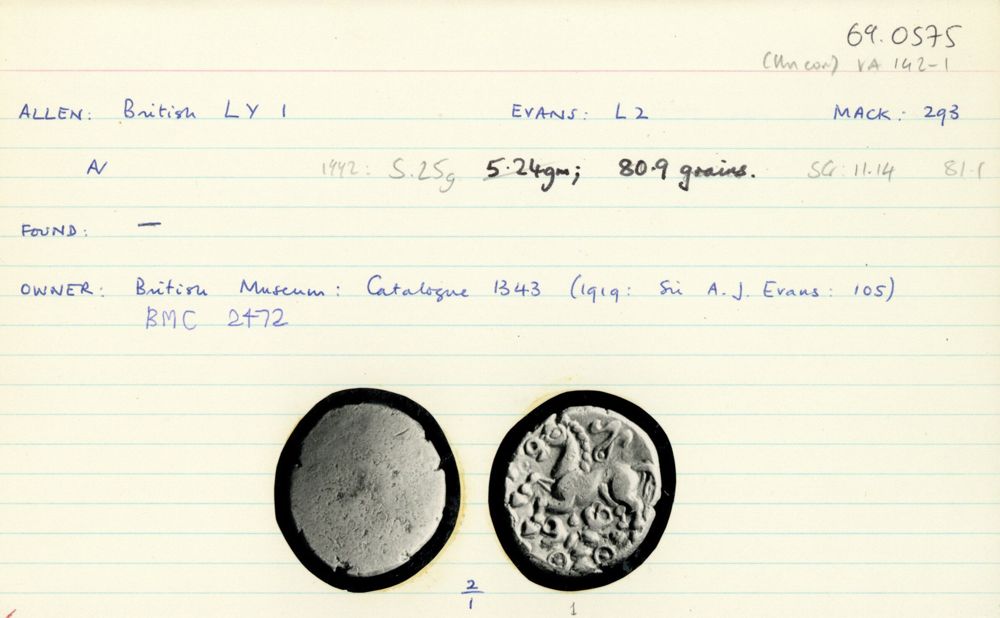 69.0575
(Uncon) VA 142-1
ALLEN: British LY 1 EVANS: L2 MACK: 293
AV 1992: 5.25g 5.24gm; 80.9 grains. SG: 11.14 81.1
FOUND: —
OWNER: British Museum: Catalogue 1343 (1919: Sir A. J. Evans: 105)
BMC 2472
2/1 1